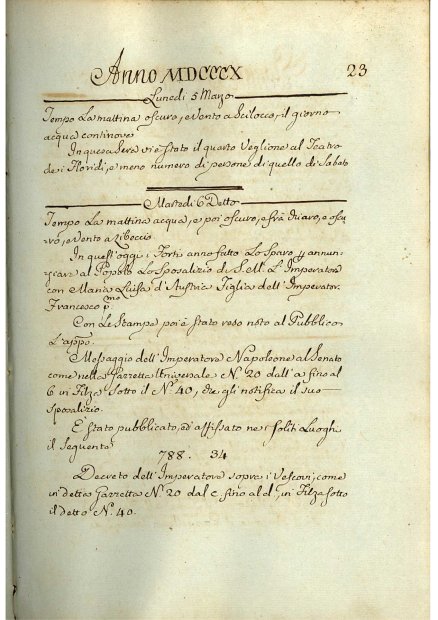 Anno MDCCCX
23
Lunedi 5 Marzo
Tempo La mattina oscuro, e vento a Scilocco, il giorno
acqua continova
In questa sera vi è stato il quarto Veglione al Teatro
de i Floridi, e meno numero di persone di quello di Sabato
Martedi 6 Detto
Tempo La mattina acqua, e poi oscuro, e frà chiaro, e oscu
ro, e vento a Libeccio
In quest'oggi i Forti anno fatto Lo Sparo p annun:
ziare al Popolo Lo Sposalizio di S. M. L' Imperatore
con Maria Luisa d'Austria Figlia dell' Imperator
Francesco pmo
Con Le Stampe poi è stato reso noto al Pubblico
L'appo
Messaggio dell' Imperatore Napoleone al Senato
come nella Gazzetta Universale No. 20 dall' a fino al
6 in Filza sotto il No. 40, che gli notifica il suo
sposalizio.
E' stato pubblicato, ed affissato ne i soliti Luoghi
il seguente
788. 34
Decreto dell' Imperatore sopra i Vescovi, come
in detta Gazzetta No. 20 dal c. fino al d, in Filza sotto
il detto No. 40.